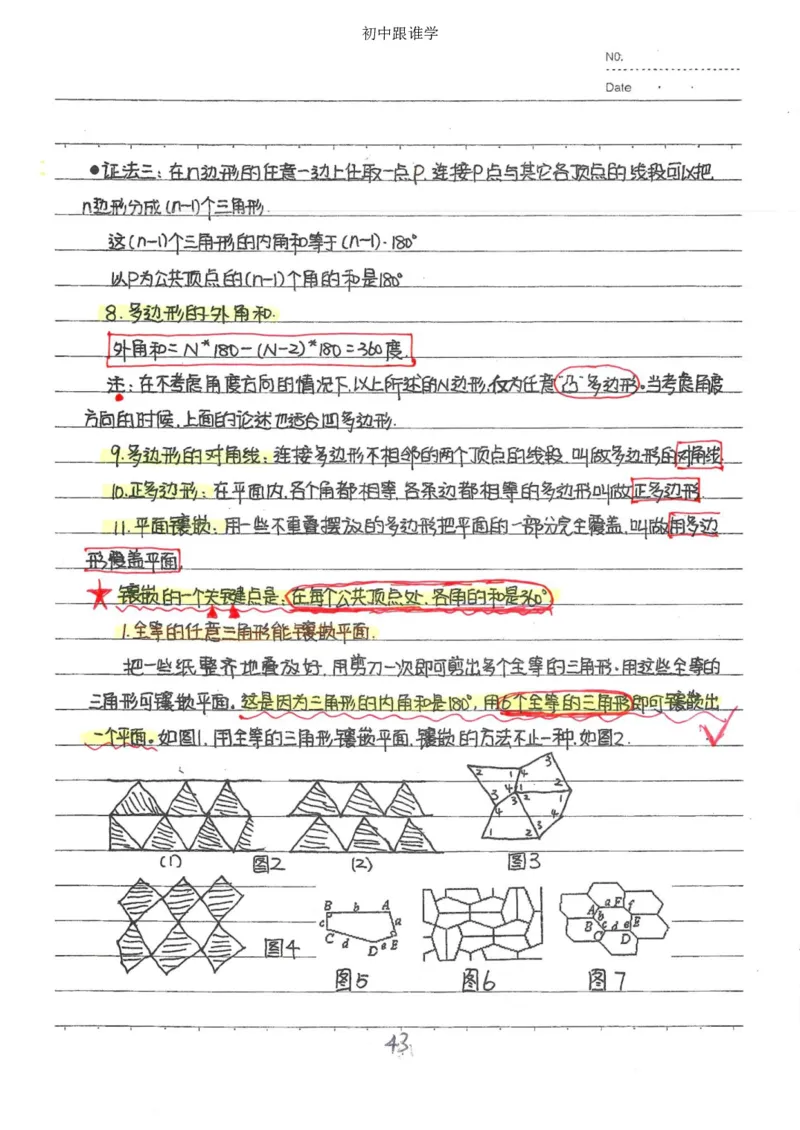 初中跟谁学
NO.
Date
●证法三:在n边形的任意一边上任取一点P,连接P点与其它各顶点的线段可以把
n边形分成(n-1)个三角形.
这(n-1)个三角形的内角和等于(n-1)·180°
以P为公共顶点的(n-1)个角的和是180°
8.多边形的外角和.
外角和=N*180-(N-2)*180=360度.
注:在不考虑角度方向的情况下,以上所述的N边形,仅为任意“凸”多边形.当考虑角度
方向的时候,上面的论述也适合凹多边形.
9.多边形的对角线:连接多边形不相邻的两个顶点的线段,叫做多边形的对角线.
10.正多边形:在平面内,各个角都相等,各条边都相等的多边形叫做正多边形.
11.平面镶嵌:用一些不重叠摆放的多边形把平面的一部分完全覆盖,叫做用多边
形覆盖平面.
★镶嵌的一个关键点是:在每个公共顶点处,各角的和是360°.
1.全等的任意三角形能镶嵌平面.
把一些纸整齐地叠放好,用剪刀一次即可剪出多个全等的三角形.用这些全等的
三角形可镶嵌平面.这是因为三角形的内角和是180°,用6个全等的三角形即可镶嵌出
一个平面.如图1.用全等的三角形镶嵌平面,镶嵌的方法不止一种,如图2.
2 1 4 3 3 4 1 2 4 3 2 1 4 1 2 3
(1) 图2 (2) 图3
B b A c a C d D e E
a F f A b B c d e E C D
图4
图5 图6 图7
43